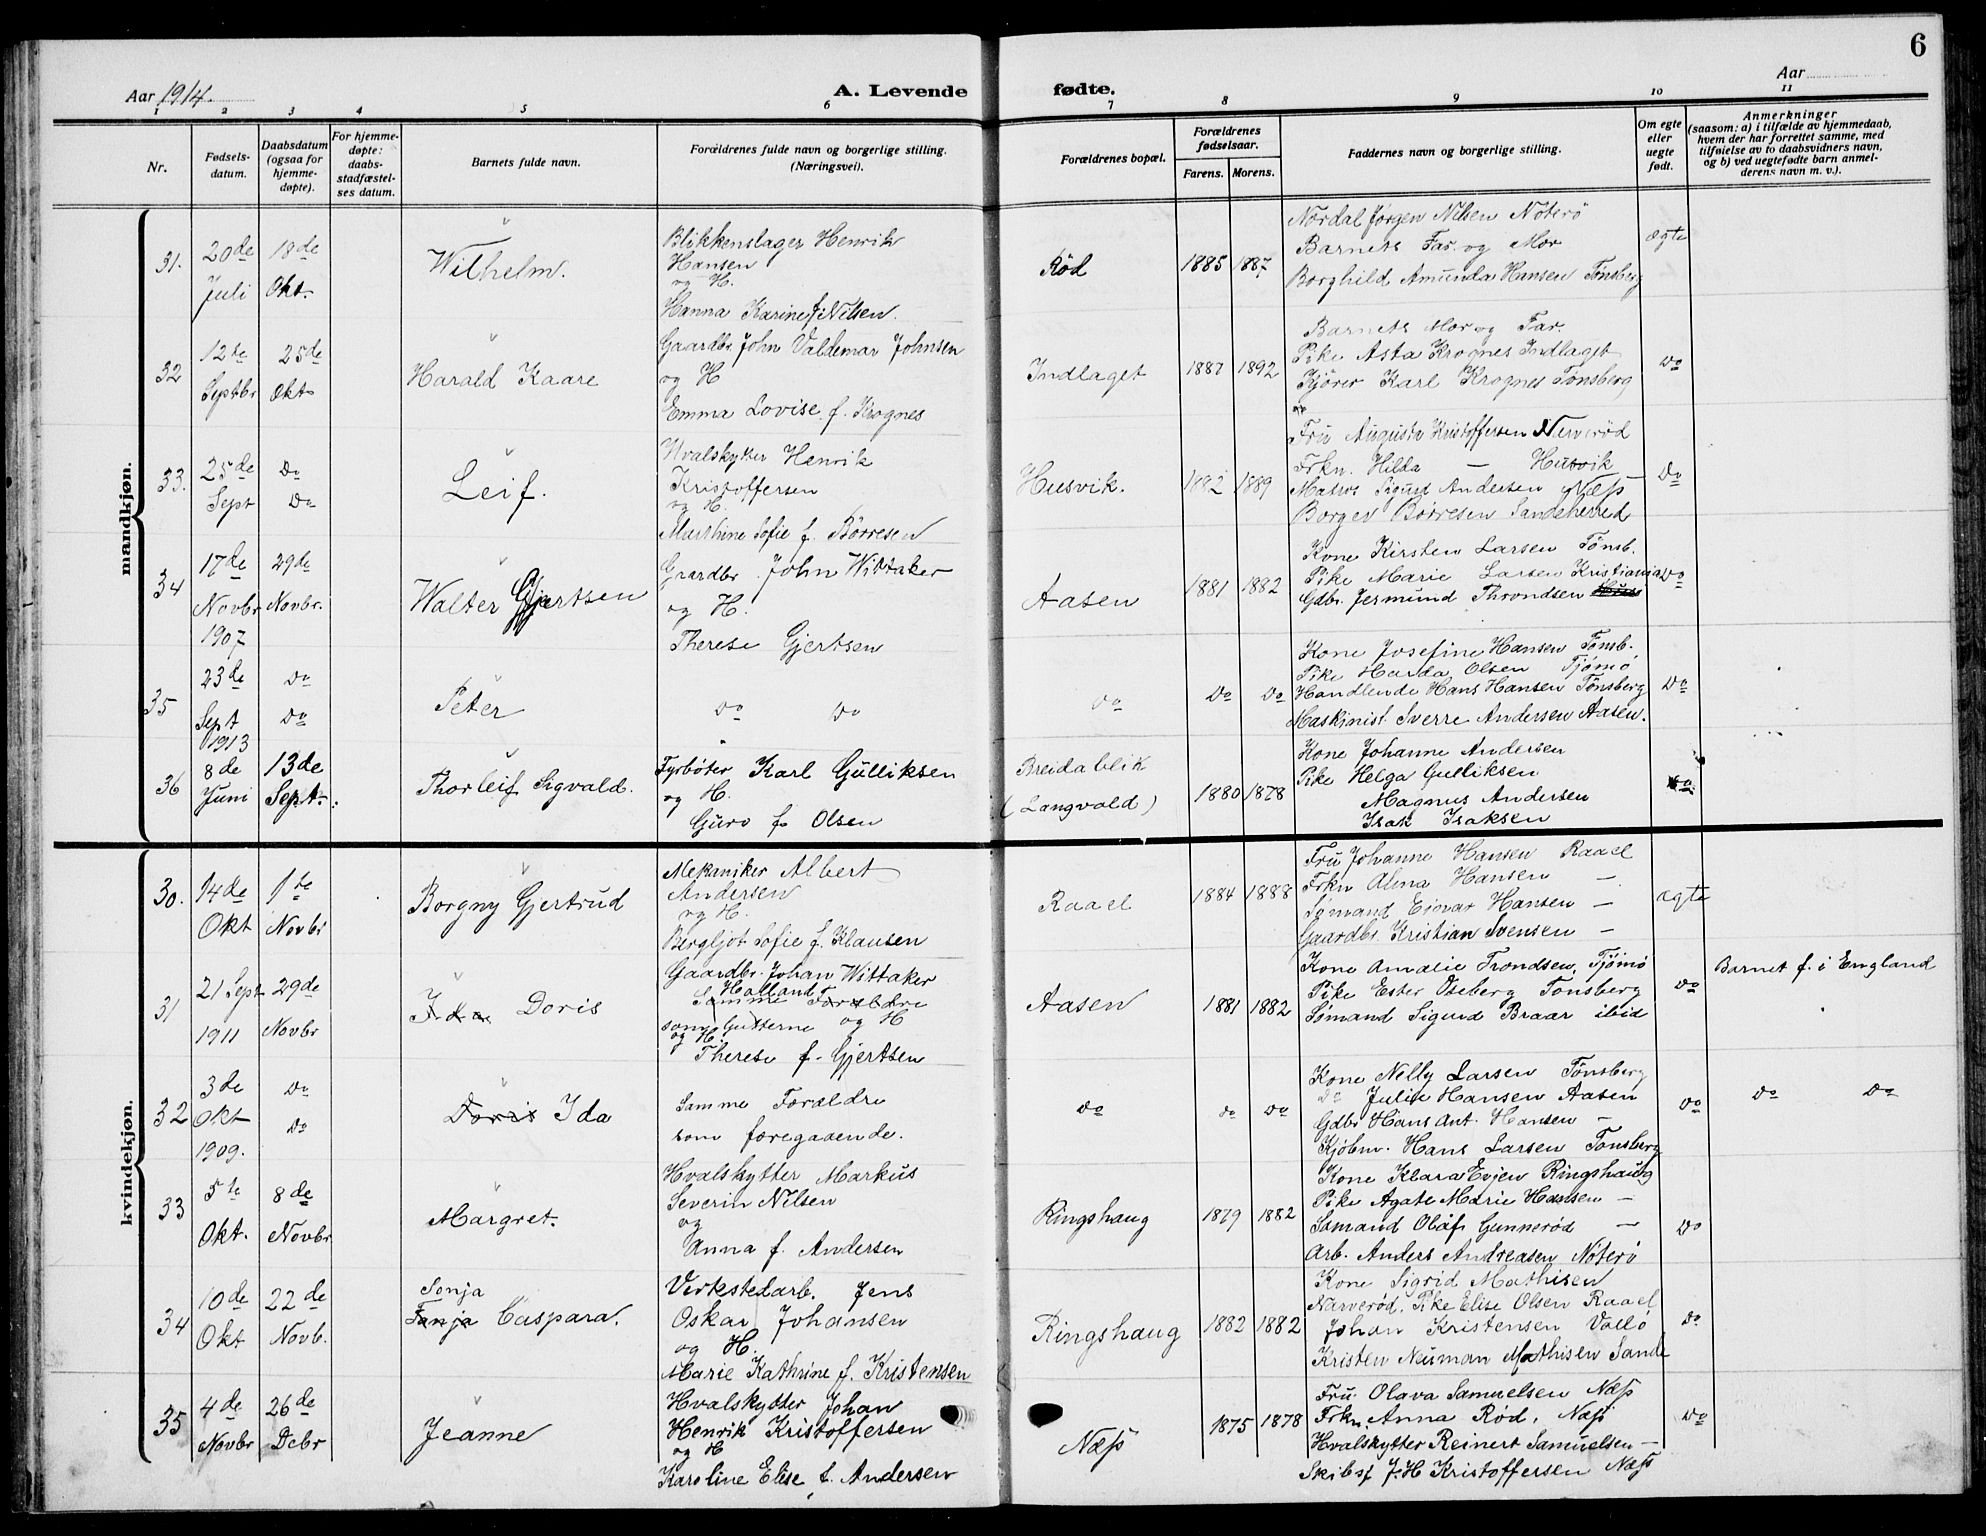 6
Aar 1914.
A. Levende fødte.
Aar
1 2 3 4 5 6 7 8 9 10 11
Nr.
Fødsels-datum.
Daabsdatum (ogsaa for hjemme-døpte).
For hjemme-døpte: daabs-stadfæstel-ses datum.
Barnets fulde navn.
Forældrenes fulde navn og borgerlige stilling. (Næringsvei).
Forældrenes bopæl.
Forældrenes fødselsaar.
Farens. Morens.
Faddernes navn og borgerlige stilling.
Om egte eller uegte født.
Anmerkninger
(saasom: a) i tilfælde av hjemmedaab, hvem der har forrettet samme, med tilføielse av to daabsvidners navn, og b) ved uegtefødte barn anmel-derens navn m. v.).
mandkjøn.
31. 20de Juli
18de Okt.
Wilhelm.
Blikkenslager Henrik
Hansen
og H.
Hanna Karine f. Nilsen.
Rød
1885 1887
Nordal Jørgen Nilsen Noterö
Barnets Far og Mor
Borghild Amunda Hansen Tönsberg
ægte
32 12te Septbr
25de Okt
Harald Kaare
Gaardbr John Valdemar Johnsen
og H
Emma Lovise f. Krognes
Indlaget
1887 1892
Barnets Mor og Far.
Pike Asta Krognes Indlaget
Kjörer Karl Krognes Tönsberg
Do
33. 25de Sept
Do Do
Leif.
Hvalskytter Henrik
Kristoffersen
og H.
Marthine Sofie f. Börresen
Husvik.
1882 1889
Fru Augusta Kristoffersen Neverød
Frkn. Hilda — Husvik
Matros Sigurd Andersen Næss
Borger Börresen Sandeherred
Do
34 17de Novbr 1907
29de Novbr.
Walter Gjertsen
Gaardbr. John Wittaker
og H.
Therese Gjertsen
Aasen
1881 1882
Kone Kirsten Larsen Tönsb.
Pike Marie Larsen Kristiania
Gdbr. Jermund Throndsen
Do
35 23de Sept 1913
Do Do
Peter
Do Do
Do
Do Do
Kone Josefine Hansen Tönsb.
Pike Hulda Olsen Tjömö
Handlende Hans Hansen Tönsberg
Maskinist Sverre Andersen Aasen.
Do
36 8de Juni
13de Sept.
Thorleif Sigvald.
Fyrböter Karl Gulliksen
og H.
Guro f. Olsen
Breidablik
(Langvald)
1880 1878
Kone Johanne Andersen
Pike Helga Gulliksen
Magnus Andersen
Isak Isaksen
Do
kvindekjøn.
30. 14de Okt
1te Novbr
Borgny Gjertrud
Mekaniker Albert
Andersen
og H.
Bergljot Sofie f. Klausen
Raael
1884 1888
Fru Johanne Hansen Raael
Frkn Alma Hansen —
Sømand Einar Hansen —
Gaardbr. Kristian Svensen —
ægte
31 21 Sept 1911
29de Novbr
Ida Doris
Gaardbr. Johan Wittaker
Holland
Samme Forældre
som Gutterne og H
og H.
Therese f. Gjertsen
Aasen
1881 1882
Kone Amalie Trondsen, Tjömö
Pike Ester Oseberg Tönsberg
Sømand Sigurd Braar ibid
Do
Barnet f. i England
32 3de Okt 1909.
Do Do
Doris Ida
Samme Forældre
som foregaaende.
Do
Do Do
Kone Nelly Larsen Tönsberg
Do Julie Hansen Aasen
Gdbr Hans Ant. Hansen —
Kjöbm. Hans Larsen Tönsberg
Do
Do Do
33 5te Okt.
8de Novbr
Margret.
Hvalskytter Markus
Severin Nilsen
og
Anna f. Andersen
Ringshaug
1879 1882
Kone Klara Evjen Ringshaug
Pike Agate Marie Hansen —
Sømand Olaf Gunnerød —
Arb. Anders Andreasen Nöterö
Do
34 10de Okt
22de Novb.
Sonja
Tanja Caspara.
Verkstedarb. Jens
Oskar Johansen
og H.
Marie Kathrine f. Kristensen
Ringshaug
1882 1882
Kone Sigrid Mathisen
Narverød. Pike Elise Olsen Raael
Johan Kristensen Vallö
Kristen Neuman Mathisen Sande
Do
35 4de Novbr
26de Debr
Jeanne
Hvalskytter Johan
Henrik Kristoffersen
og H
Karoline Elise f. Andersen
Næss
1875 1878
Fru Olava Samuelsen Næss
Frkn. Anna Rød, Næss
Hvalskytter Reinert Samuelsen —
Skibsf J. H Kristoffersen Næss
Do